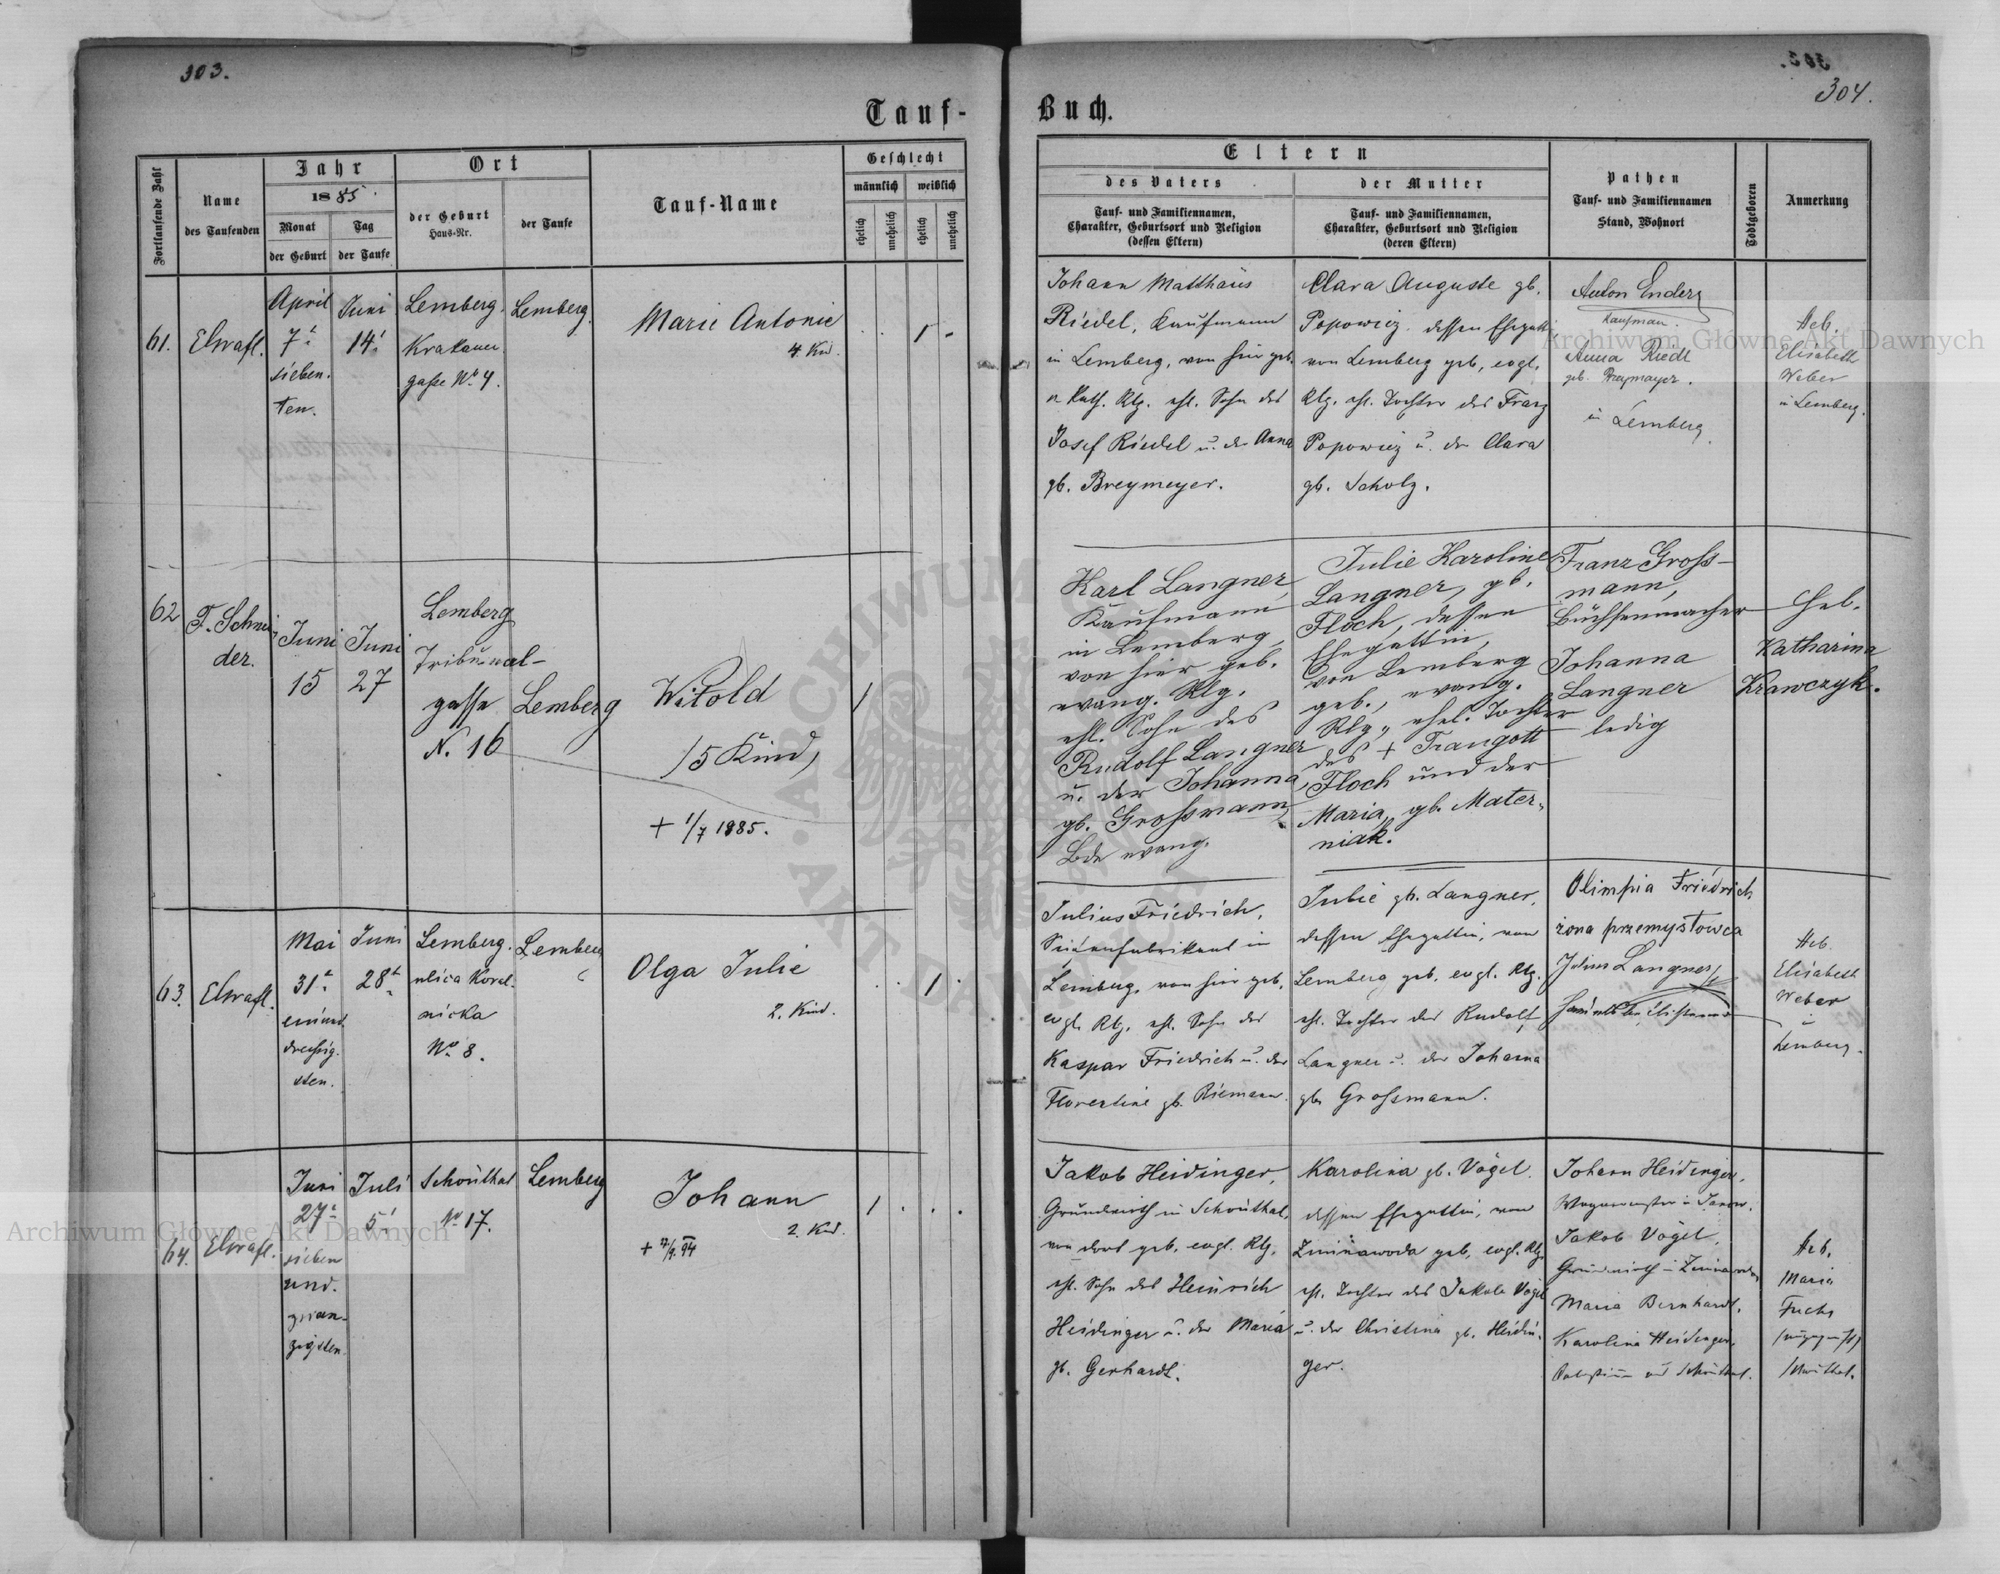 303.
304.
Tauf-
Buch.
Fortlaufende Zahl
Name
des Taufenden
Jahr
1885.
Monat
der Geburt
Tag
der Taufe
Ort
der Geburt
Haus-Nr.
der Taufe
Tauf-Name
Geschlecht
männlich
weiblich
ehelich
unehelich
ehelich
unehelich
Eltern
des Vaters
Tauf- und Familiennamen,
Charakter, Geburtsort und Religion
(dessen Eltern)
der Mutter
Tauf- und Familiennamen,
Charakter, Geburtsort und Religion
(deren Eltern)
Pathen
Tauf- und Familiennamen
Stand, Wohnort
Todtgeboren
Anmerkung
61.
April
7t
sieben-
ten.
Juni
14t
Lemberg.
Krakauer
gasse No 4.
Lemberg.
Marie Antonie
4. Kd.
1
Johann Matthäus
Riedel, Kaufmann
in Lemberg, von hier geb.
r. kath. Rlg. ehl. Sohn des
Josef Riedel u. der Anna
gb. Breymeyer.
Clara Auguste gb.
Popowicz dessen Ehegattin
von Lemberg geb, evgl.
Rlg. ehl. Tochter des Franz
Popowicz u. der Clara
gb. Scholz.
Anton Enders
Kaufman.
Anna Riedl
geb. Breymayer.
in Lemberg.
Heb.
Elisabeth
Weber
in Lemberg.
62
F. Schnei-
der.
Juni
15
Juni
27
Lemberg
Tribunal-
gasse
N. 16
Lemberg
Witold
/5 Kind/
+ 1/7 1885.
1
Karl Langner,
Kaufmann
in Lemberg,
von hier geb.
evang. Rlg.
ehl. Sohn des
Rudolf Langner
u. der Johanna
gb. Grossmann,
Bde evang.
Julie Karoline
Langner, gb.
Floch, dessen
Ehegattin,
von Lemberg
geb., evang.
Rlg., ehel. Tochter
des + Traugott
Floch und der
Maria, gb. Mater-
niak.
Franz Gross-
mann,
Büchsenmacher
Johanna
Langner
ledig
Heb.
Katharina
Krawczyk.
63.
Mai
31t
einund
dreissig-
sten.
Juni
28t
Lemberg.
ulica Korol-
nicka
No 8.
Lemberg
Olga Julie
2. Kind.
1
Julius Friedrich,
in
Lemberg, von hier geb.
evgl. Rlg. ehl. Sohn des
Kaspar Friedrich u. der
Florentine gb. Riemann.
Julie gb. Langner,
dessen Ehegattin, von
Lemberg geb. evgl. Rlg.
ehl. Tochter des Rudolf
Langner u. der Johanna
gb. Grossmann.
Olimpia Friedrich
żona przemysłowca
Julius Langner
Heb.
Elisabeth
Weber
in
Lemberg.
64.
Juni
27t
sieben
und
zwan-
zigsten.
Juli
5t
Schönthal
No 17.
Lemberg
Johann
2. Kd.
1
Jakob Heidinger,
Grundwirth in Schönthal,
von dort geb. evgl. Rlg.
ehl. Sohn des Heinrich
Heidinger u. der Maria
gb. Gerhardt.
Karolina gb. Vogel
dessen Ehegattin, von
Zimnawoda geb. evgl. Rlg.
ehl. Tochter des Jakob Vogel
u. der Christina gb. Heidin-
ger.
Johann Heidinger,
Jakob Vogel,
Grundwirth in Zimnawoda
Maria Bernhardt,
Karolina Heidinger,
Heb.
Maria
Fuchs
Schönthal.
Archiwum Główne Akt Dawnych
Archiwum Główne Akt Dawnych